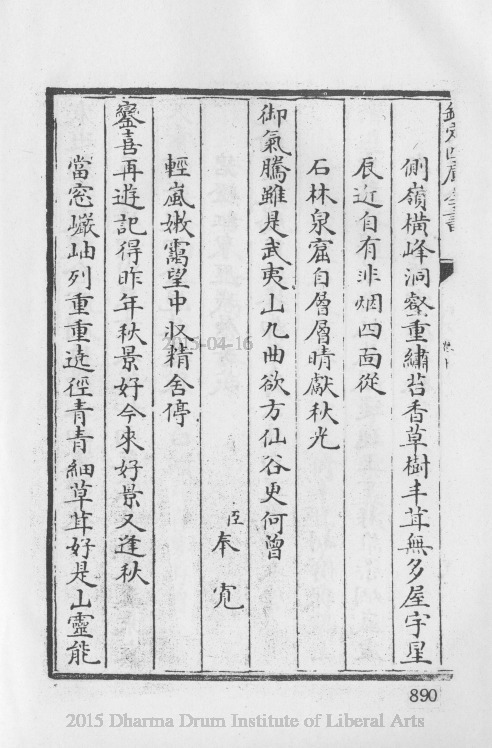 欽定四庫全書
側嶺橫峰洞壑重繡苔香草樹丰茸無多屋宇星
辰近自有非烟四面從
石林泉窟自層層晴獻秋光
御氣騰雖是武夷山九曲欲方仙谷更何曾
臣奉寬
輕嵐嫩靄望中収精舍停
鑾喜再遊記得昨年秋景好今來好景又逢秋
當窓巘岫列重重遠徑青青細草茸好是山靈能
890
2015-04-16
2015 Dharma Drum Institute of Liberal Arts